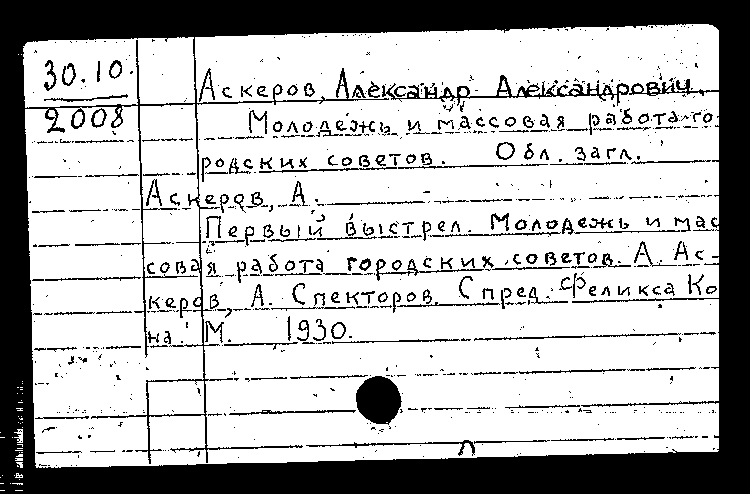 30.10.
2008
Аскеров, Александр Александрович.
Молодежь и массовая работа го-
родских советов. Обл. загл.
Аскеров, А.
Первый выстрел. Молодежь и мас
совая работа городских советов. А. Ас-
керов, А. Спекторов. С пред. Феликса Ко
на. М. 1930.